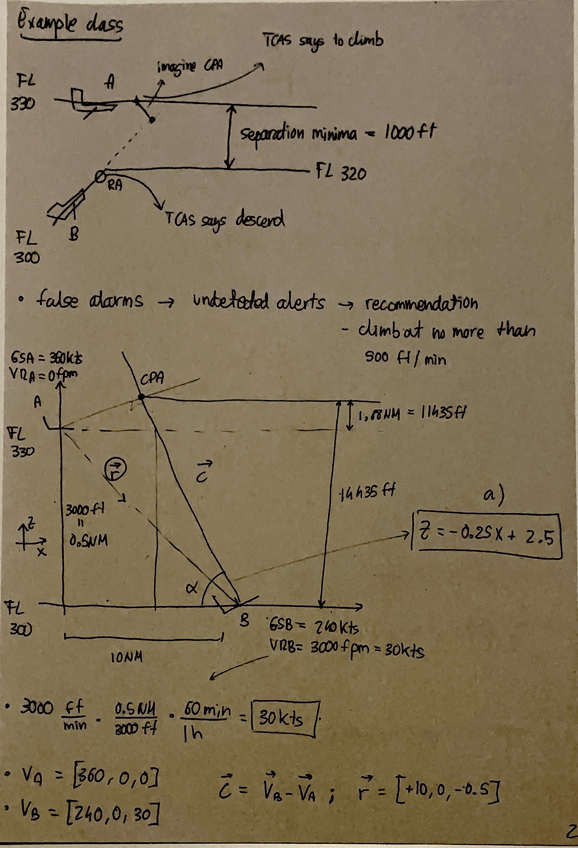 Example class
TCAS says to climb
imagine CPA
A
FL
330
separation minima = 1000 ft
FL 320
RA
TCAS says descend
B
FL
300
• false alarms → undetected alerts → recommendation
- climb at no more than
500 ft/min
GSA = 360kts
VRA = 0 fpm
CPA
A
1,88NM = 11435ft
FL
330
r
c
3000 ft
=
0.5NM
14435 ft
a)
z = -0.25x + 2.5
z
x
α
FL
300
B
GSB = 240kts
VRB = 3000 fpm = 30kts
10NM
• 3000 ft/min · 0.5 NM/3000 ft · 60 min/1 h = 30 kts
• VA = [360, 0, 0]
c = VB - VA ; r = [+10, 0, -0.5]
• VB = [240, 0, 30]
2